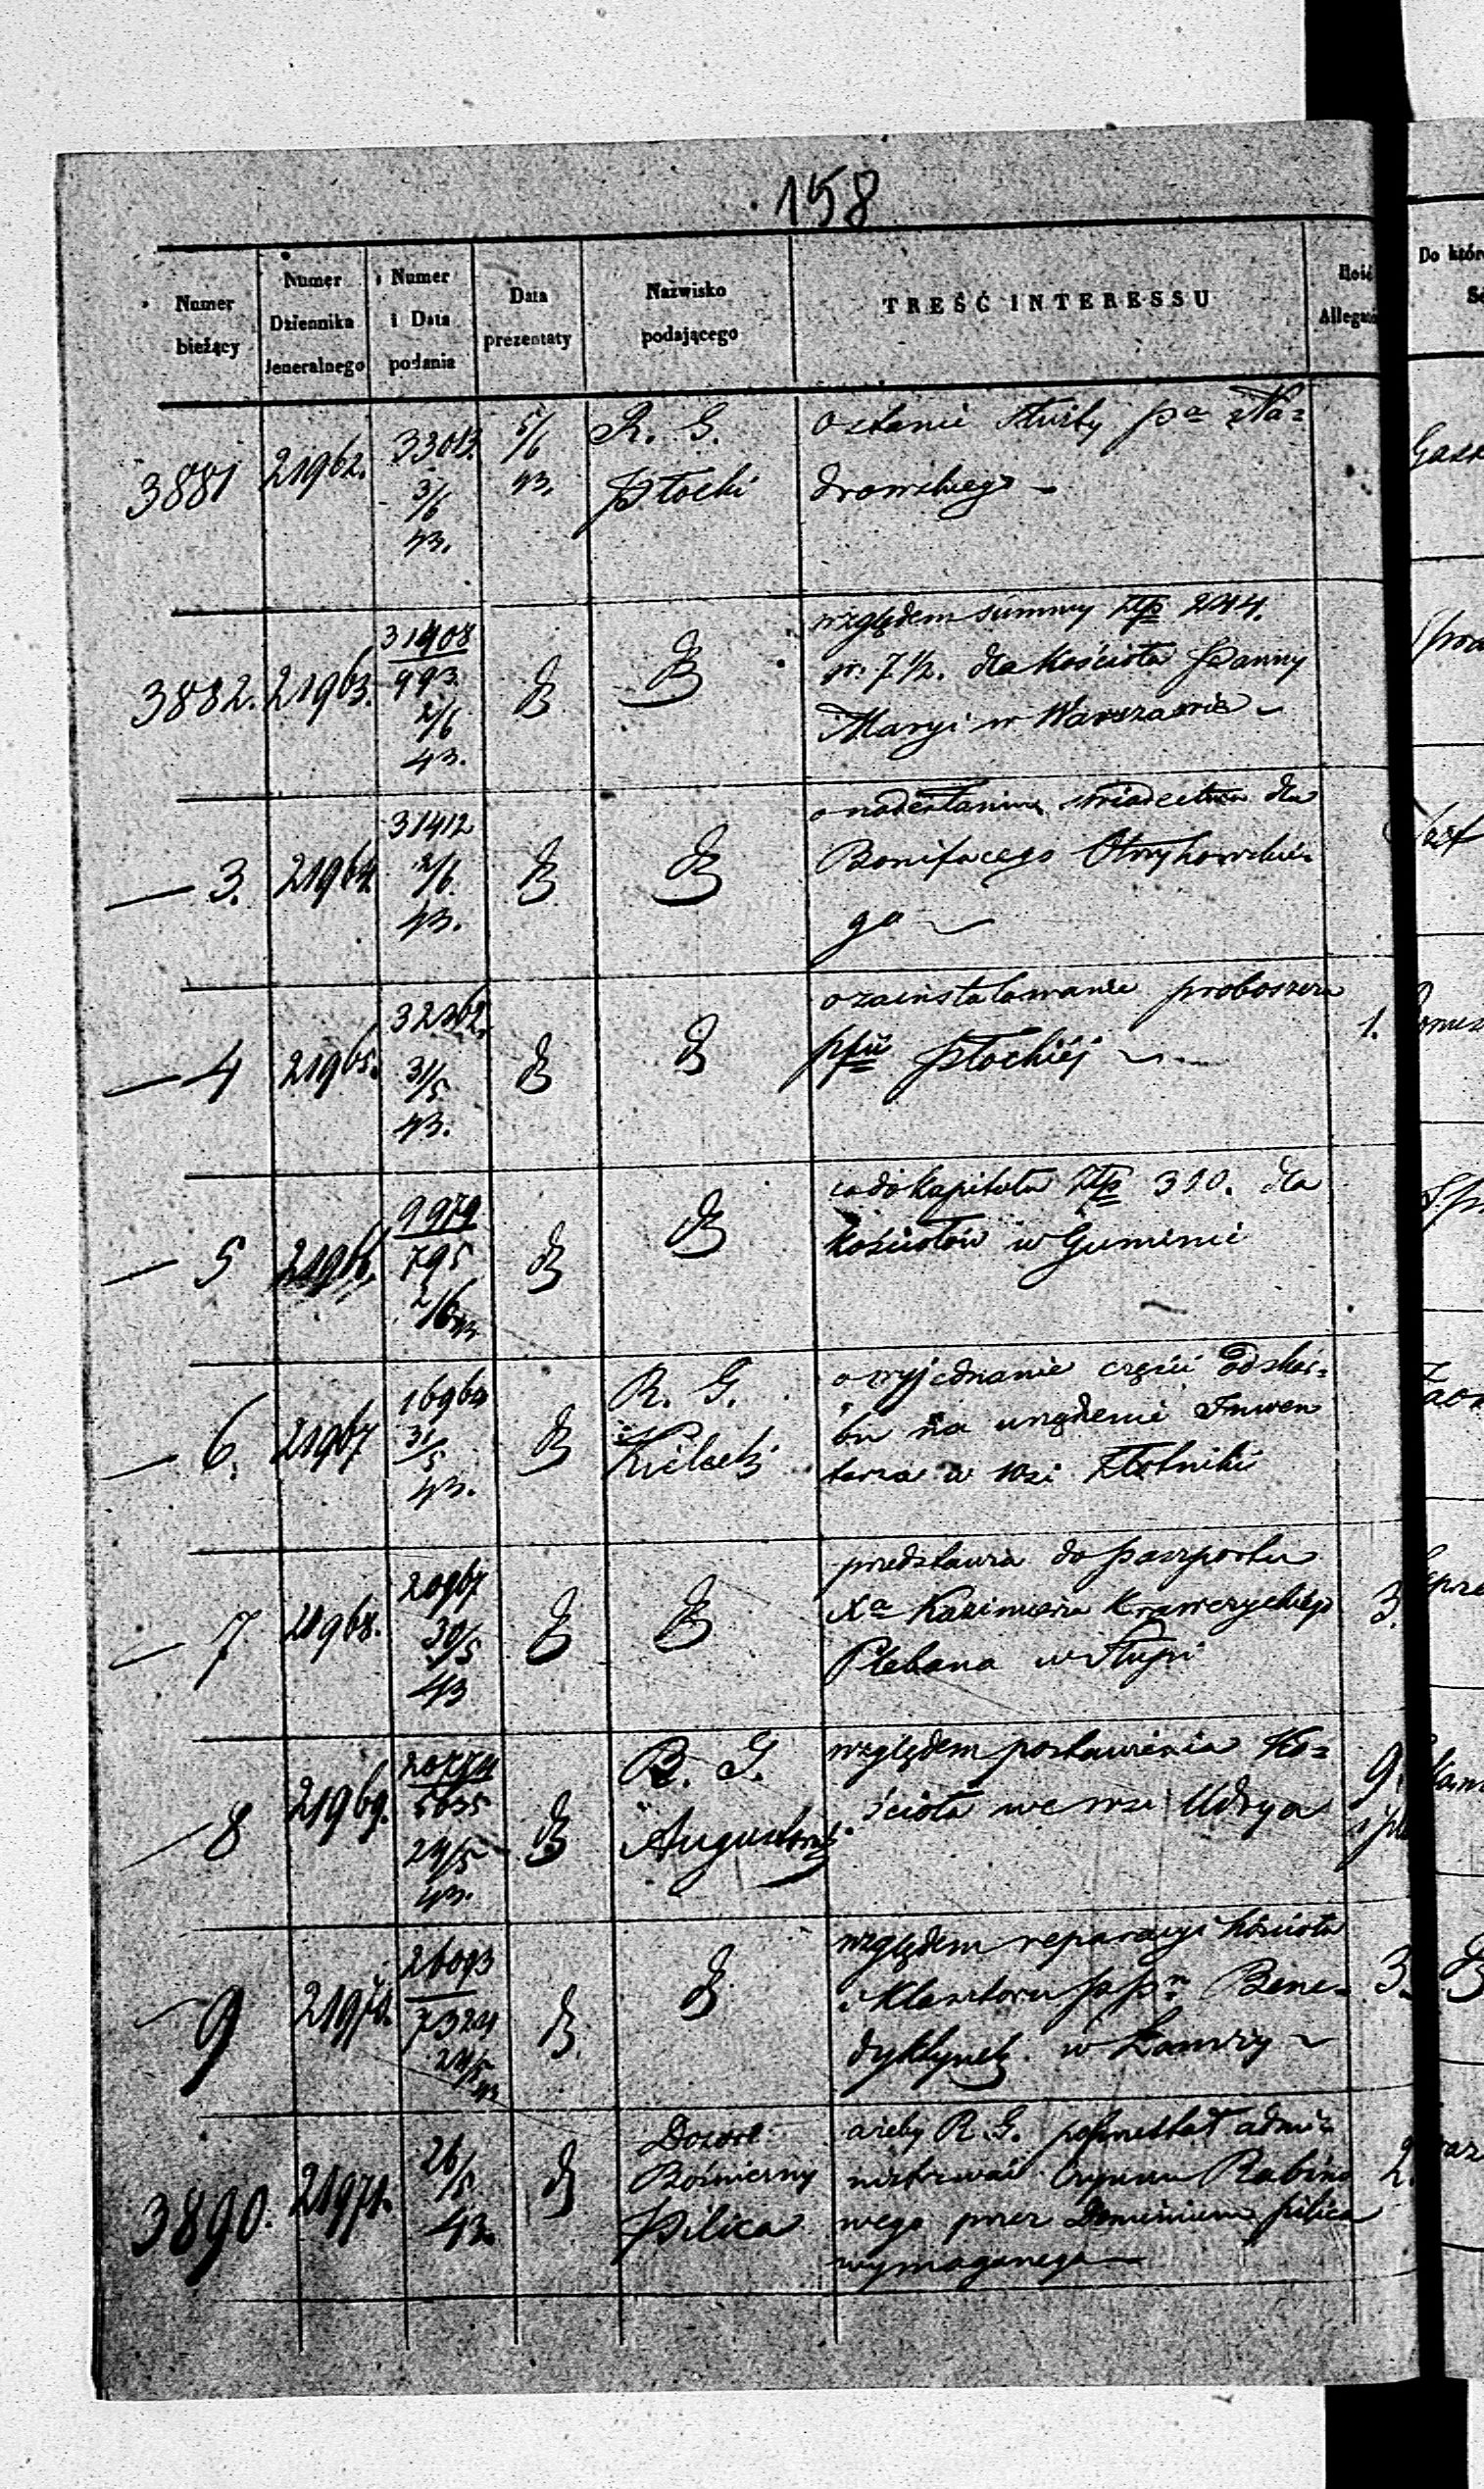 158
Numer bieżący
Numer Dziennika Jeneralnego
Numer i Data podania
Data prezentaty
Nazwisko podającego
TREŚĆ INTERESSU
Ilość
Do któr
3881
21962.
33013.
3/6
43.
5/6
43.
R. G.
Płocki
o stanie służby Pa Na=
drowskiego
3882.
21963.
31408
993.
2/6
43.
względem summy Złp 244.
gr. 7 1/2. dla Kościoła Panny
Maryi w Warszawie
3.
21964
31412
2/6.
43.
o nadesłanie świadectwa dla
Bonifacego
go
4
21965.
31/5.
43.
o zainstalowanie proboszcza
ppii Płockiéj
1.
5
21966.
9979
795
2/6 43
co do kapitału Złp 310. dla
kościołów w Guminie
6.
21967
16964
31/5
43.
R. G.
Kielecki
o wyjednanie części
na urządzenie Inwen
tarza w wsi Złotniki
7
21968.
20967
30/5
43
przedstawia do paszportu
Xa Kazimierza Krawczyckiego
Plebana w Słupi
3.
8
21969.
5635
24/5
43.
R. G.
Augustows.
względem postawienia Ko=
ścioła we wsi Udrya
9.
9
21970.
26093
7324
24/5
43
względem reparacyi kościoła
i Klasztoru PPn Bene=
dyktynek w Łomży
3.
3890.
21971.
26/5.
43.
Dozór
Bóżniczny
Pilica
ażeby R. G. pośmieszkał admi=
nistrować Czynszu Rabino
wego przez Dominium Pilica
wymaganego
2.